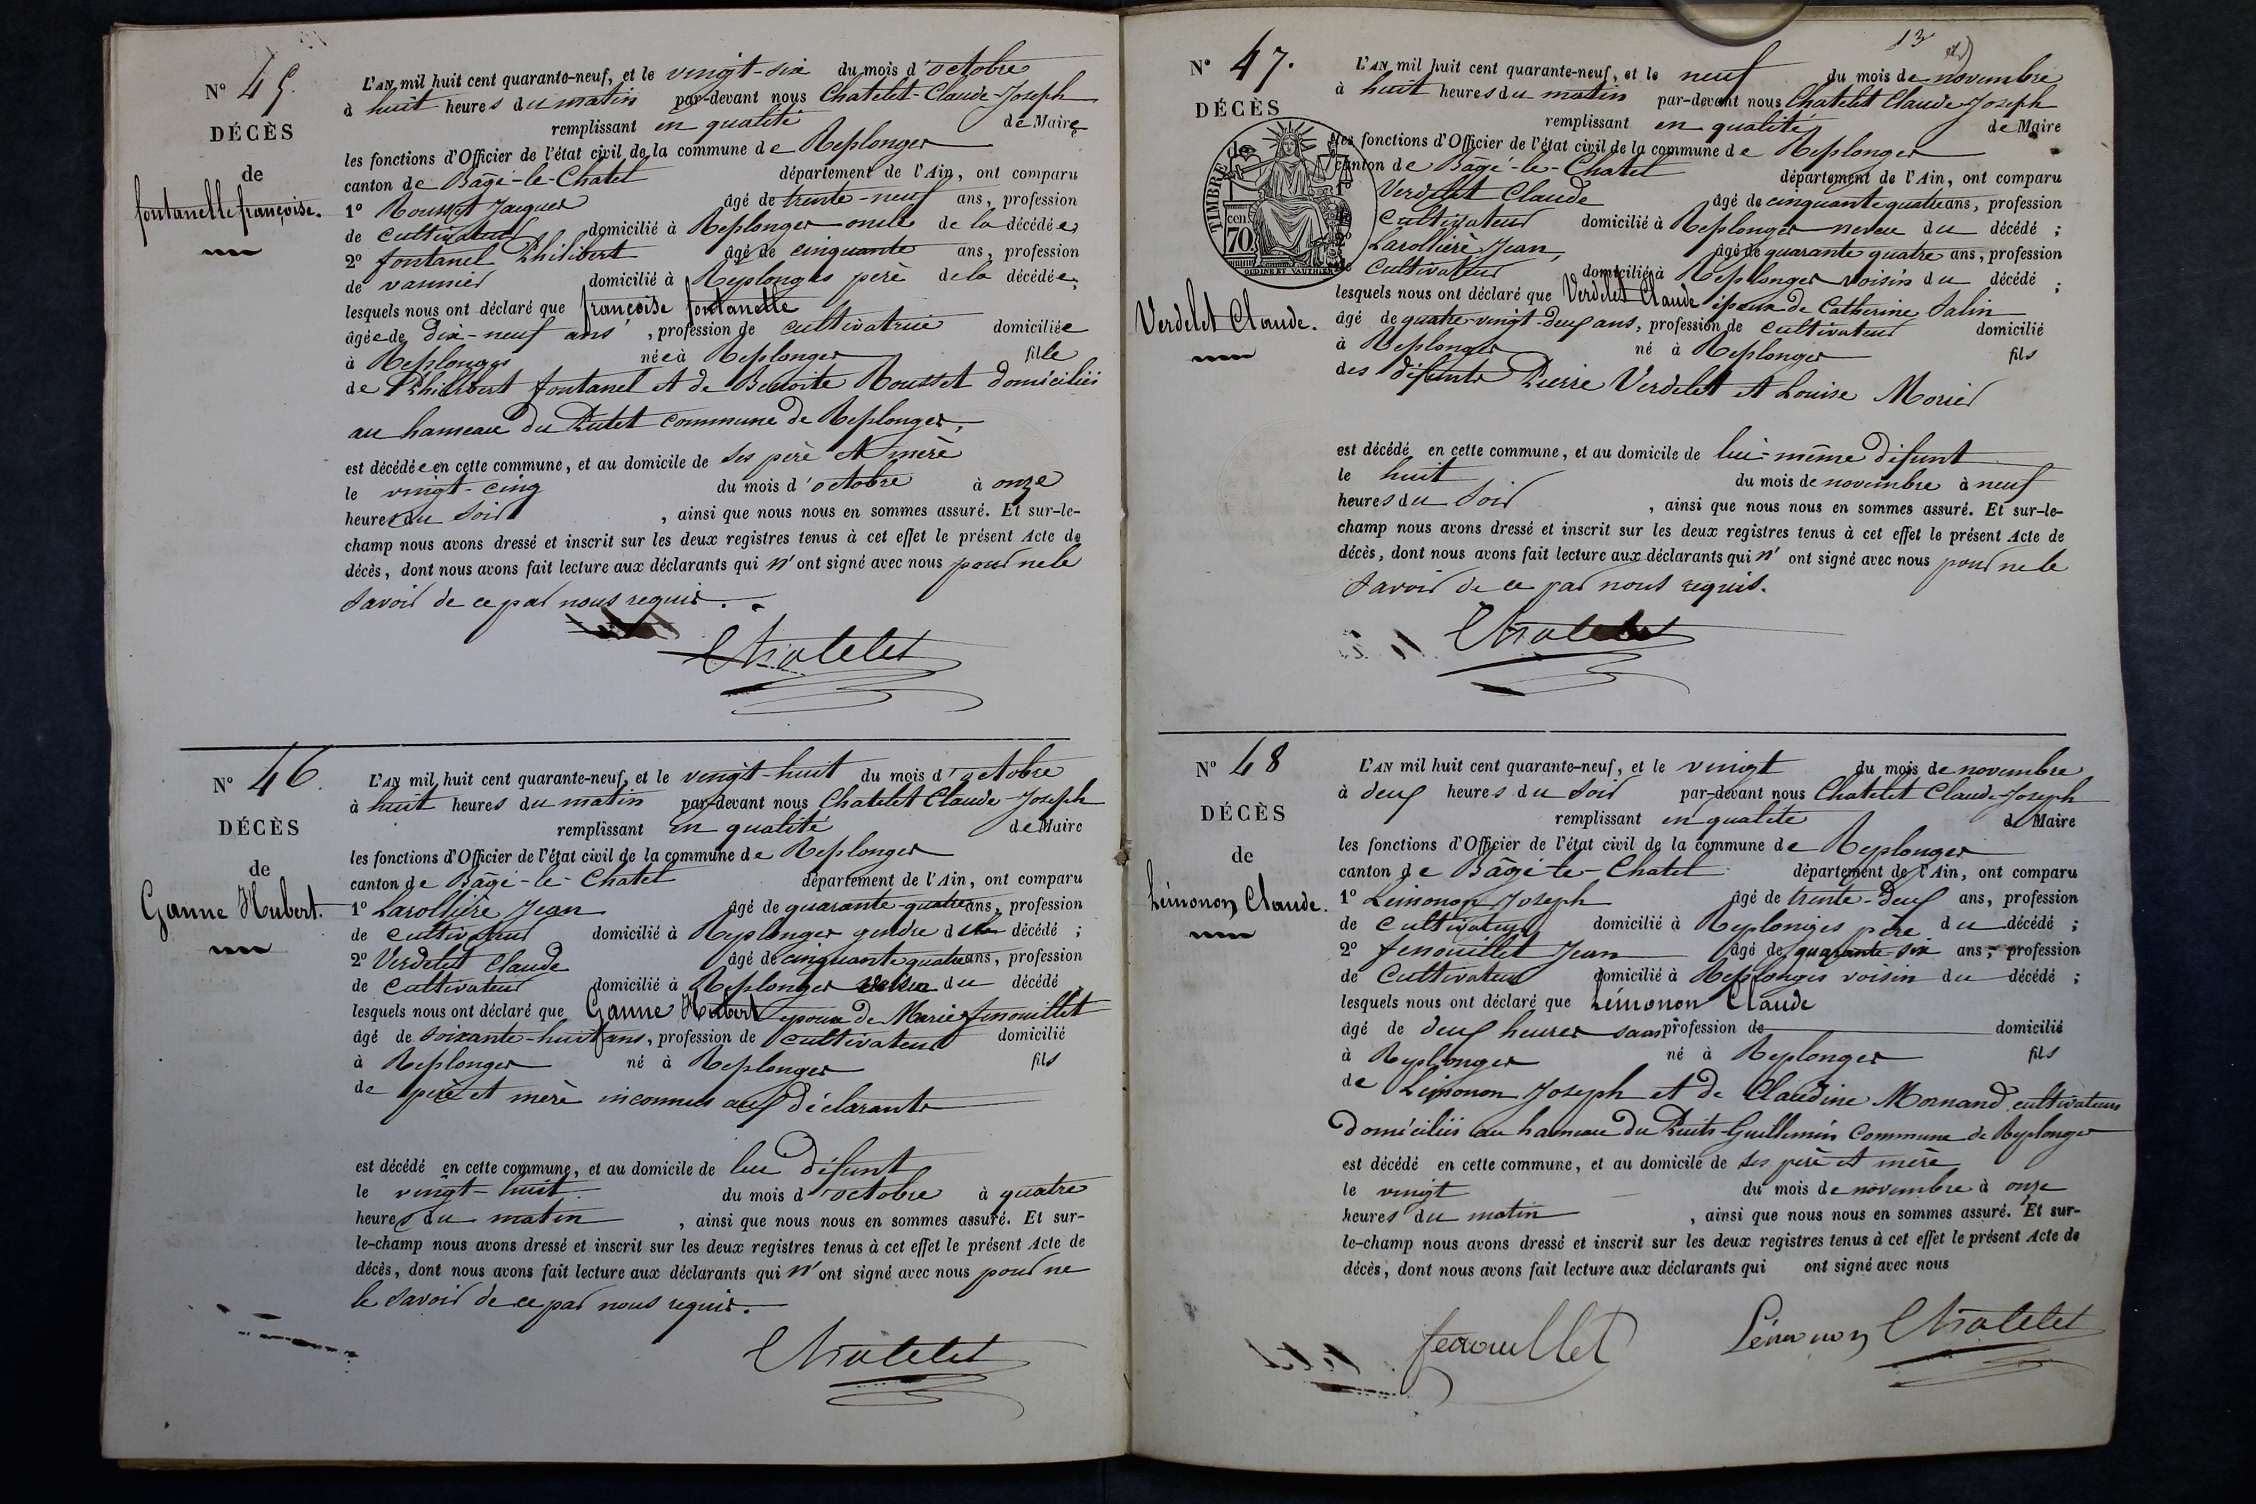 N° 45.
DÉCÈS
de
fontanelle françoise.
L'AN mil huit cent quarante-neuf, et le vingt-six du mois d'octobre
à huit heures du matin par-devant nous Chatelet-Claude-Joseph
remplissant en qualité de Maire
les fonctions d'Officier de l'état civil de la commune de Replonges
canton de Bâgé-le-Chatel département de l'Ain, ont comparu
1° Rousset Jacques âgé de trente-neuf ans, profession
de cultivateur domicilié à Replonges oncle de la décédée,
2° fontanel Philibert âgé de cinquante ans, profession
de vannier domicilié à Replonges père de la décédée,
lesquels nous ont déclaré que françoise fontanelle
âgée de dix-neuf ans, profession de cultivatrice domiciliée
à Replonges née à Replonges fille
de Philibert fontanel et de Benoite Rousset domiciliés
au hameau du Putet commune de Replonges,
est décédée en cette commune, et au domicile de ses père et mère
le vingt-cinq du mois d'octobre à onze
heures du soir, ainsi que nous nous en sommes assuré. Et sur-le-
champ nous avons dressé et inscrit sur les deux registres tenus à cet effet le présent Acte de
décès, dont nous avons fait lecture aux déclarants qui n'ont signé avec nous pour ne le
savoir de ce par nous requis.
Chatelet
N° 46.
DÉCÈS
de
Ganne Hubert.
L'AN mil huit cent quarante-neuf, et le vingt-huit du mois d'octobre
à huit heures du matin par-devant nous Chatelet Claude-Joseph
remplissant en qualité de Maire
les fonctions d'Officier de l'état civil de la commune de Replonges
canton de Bâgé-le-Chatel département de l'Ain, ont comparu
1° Larollière Jean âgé de quarante-quatre ans, profession
de cultivateur domicilié à Replonges gendre du décédé ;
2° Verdelet Claude âgé de cinquante quatre ans, profession
de cultivateur domicilié à Replonges voisin du décédé
lesquels nous ont déclaré que Ganne Hubert époux de Marie fenouillet
âgé de soixante-huit ans, profession de cultivateur domicilié
à Replonges né à Replonges fils
de père et mère inconnus aux déclarants
est décédé en cette commune, et au domicile de lui défunt
le vingt-huit du mois d'octobre à quatre
heures du matin, ainsi que nous nous en sommes assuré. Et sur-
le-champ nous avons dressé et inscrit sur les deux registres tenus à cet effet le présent Acte de
décès, dont nous avons fait lecture aux déclarants qui n'ont signé avec nous pour ne
le savoir de ce par nous requis.
Chatelet
13
N° 47.
DÉCÈS
de
TIMBRE
cen 70
Verdelet Claude.
L'AN mil huit cent quarante-neuf, et le neuf du mois de novembre
à huit heures du matin par-devant nous Chatelet Claude Joseph
remplissant en qualité de Maire
les fonctions d'Officier de l'état civil de la commune de Replonges
canton de Bâgé-le-Chatel département de l'Ain, ont comparu
1° Verdelet Claude âgé de cinquante quatre ans, profession
cultivateur domicilié à Replonges neveu du décédé ;
2° Larollière Jean, âgé de quarante quatre ans, profession
de cultivateur domicilié à Replonges voisin du décédé ;
lesquels nous ont déclaré que Verdelet Claude époux de Catherine Salin
âgé de quatre-vingt-deux ans, profession de cultivateur domicilié
à Replonges né à Replonges fils
des défunts Pierre Verdelet et Louise Morier
est décédé en cette commune, et au domicile de lui-même défunt
le huit du mois de novembre à neuf
heures du soir, ainsi que nous nous en sommes assuré. Et sur-le-
champ nous avons dressé et inscrit sur les deux registres tenus à cet effet le présent Acte de
décès, dont nous avons fait lecture aux déclarants qui n'ont signé avec nous pour ne le
savoir de ce par nous requis.
Chatelet
N° 48
DÉCÈS
de
Lémonon Claude.
L'AN mil huit cent quarante-neuf, et le vingt du mois de novembre
à deux heures du soir par-devant nous Chatelet Claude-Joseph
remplissant en qualité de Maire
les fonctions d'Officier de l'état civil de la commune de Replonges
canton de Bâgé-le-Chatel département de l'Ain, ont comparu
1° Lémonon Joseph âgé de trente-deux ans, profession
de cultivateur domicilié à Replonges père du décédé ;
2° fenouillet Jean âgé de quarante-six ans, profession
de cultivateur domicilié à Replonges voisin du décédé ;
lesquels nous ont déclaré que Lémonon Claude
âgé de deux heures sans profession de domicilié
à Replonges né à Replonges fils
de Lémonon Joseph et de Claudine Mornand cultivateurs
domiciliés au hameau du Puits-Guillemin commune de Replonges
est décédé en cette commune, et au domicile de ses père et mère
le vingt du mois de novembre à onze
heures du matin, ainsi que nous nous en sommes assuré. Et sur-
le-champ nous avons dressé et inscrit sur les deux registres tenus à cet effet le présent Acte de
décès, dont nous avons fait lecture aux déclarants qui ont signé avec nous
fenouillet Lémonon Chatelet